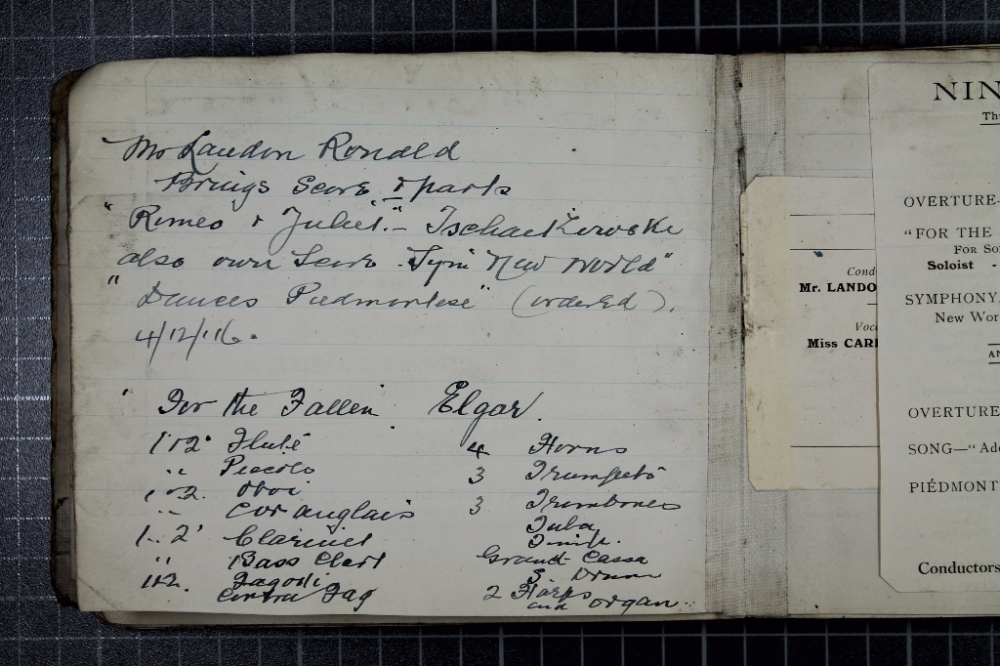 Mr Landon Ronald
Brings Score & parts
"Romeo & Juliet." - Tschaikowski
also own Score Sym New World"
"Dances Piedmontese" (ordered).
4/12/16.
'For the Fallen Elgar.
1 & 2 Flute 4 Horns
" Piccolo 3 Trumpets
1 & 2. Oboi 3 Trombones
" Cor anglais Tuba
1. 2 Clarinet Timp.
" Bass Clart Grand Cassa
1 & 2. Fagotti S. Drum
Contra Fag 2 Harps
and organ
Cond
Mr. LANDO
Voc
Miss CAR
NIN
Th
OVERTURE—
"FOR THE
FOR SO
Soloist -
SYMPHONY,
New Wor
AN
OVERTURE
SONG—"Ade
PIÉDMONT
Conductors